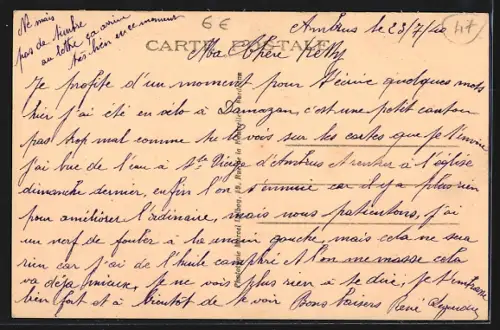 Ne mais
pas de timbre
au lettre ça arrive
très bien en ce moment
6€
Ambrus le 23/7/40
47
CARTE POSTALE
Ma Chère Ketty
Je profite d'un moment pour t'écrire quelques mots
hier j'ai été en vélo à Damazan, c'est une petit canton
pas trop mal comme tu le vois sur les cartes que je t'envoie
j'ai bue de l'eau à Ste Vierge d'Ambrus et rentrer à l'eglise
dimanche dernier, enfin l'on s'ennuie car il y a plus rien
pour améliorer l'ordinaire, mais nous patientons, j'ai
un nerf de fouler à la main gauche, mais cela ne sera
rien car j'ai de l'huile camphré et l'on me masse cela
va déjà mieux, je ne vois plus rien à te dire, je t'embrasse
bien fort et à bientôt de te voir Bons baisers René